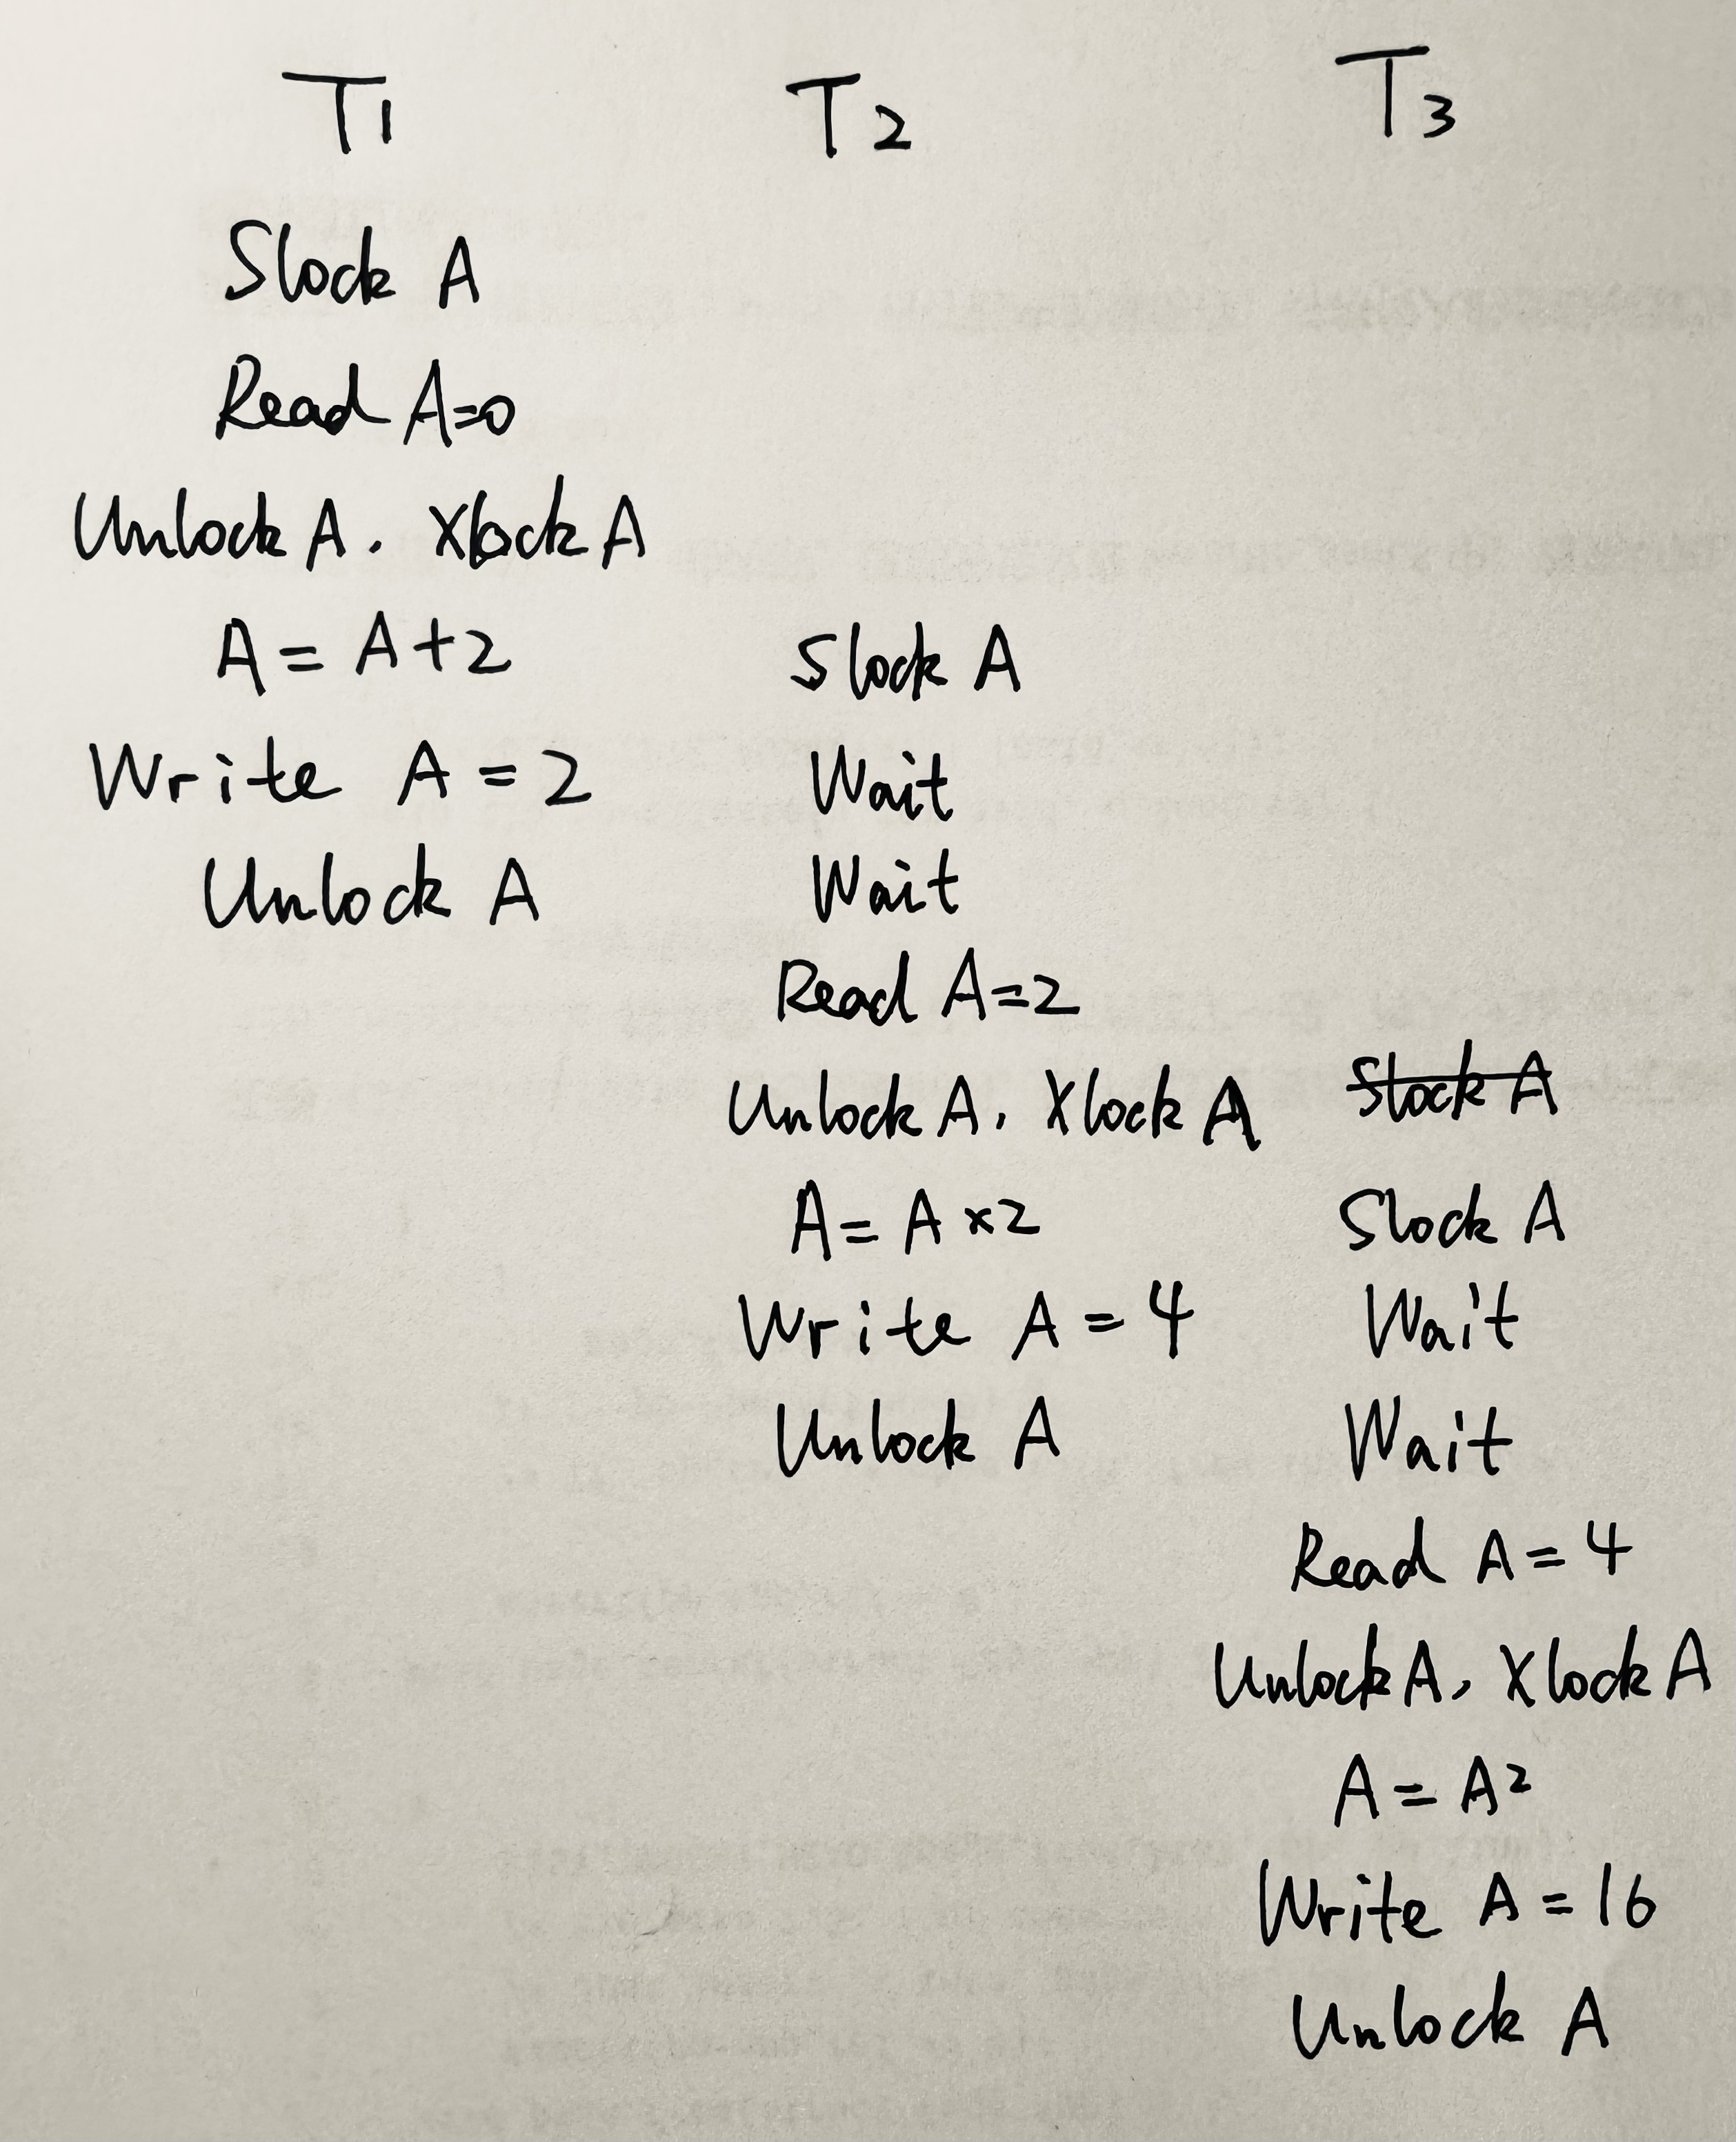 T1 T2 T3
Slock A
Read A=0
Unlock A. Xlock A
A = A+2 Slock A
Write A = 2 Wait
Unlock A Wait
Read A=2
Unlock A, Xlock A Slock A
A = A×2 Slock A
Write A = 4 Wait
Unlock A Wait
Read A = 4
Unlock A, Xlock A
A = A²
Write A = 16
Unlock A